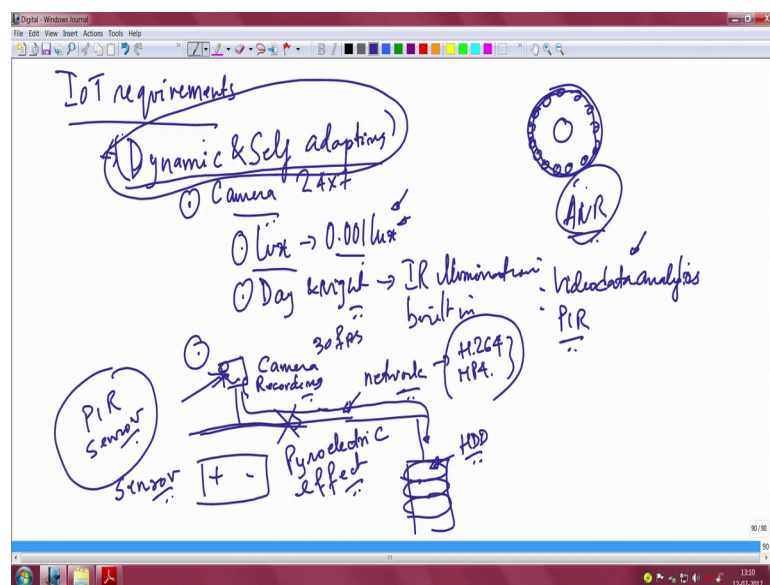 Digital - Windows Journal
File Edit View Insert Actions Tools Help
IoT requirements
Dynamic & Self adapting
Camera 24x7
Lux → 0.001 lux
Day & Night → IR Illumination
built in
ANR
Video data analytics
PIR
30 fps
Camera
Recording
network → H.264
MP4.
PIR
Sensor
Sensor
+ -
Pyroelectric
effect
HDD
90/90
90
13:10
12-07-2017